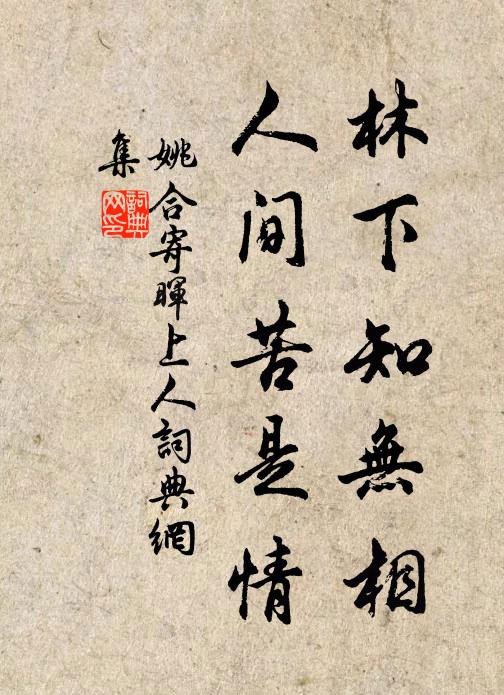 林下知無相
人間苦是情
姚合寄暉上人詞典網
集
詞典
网印